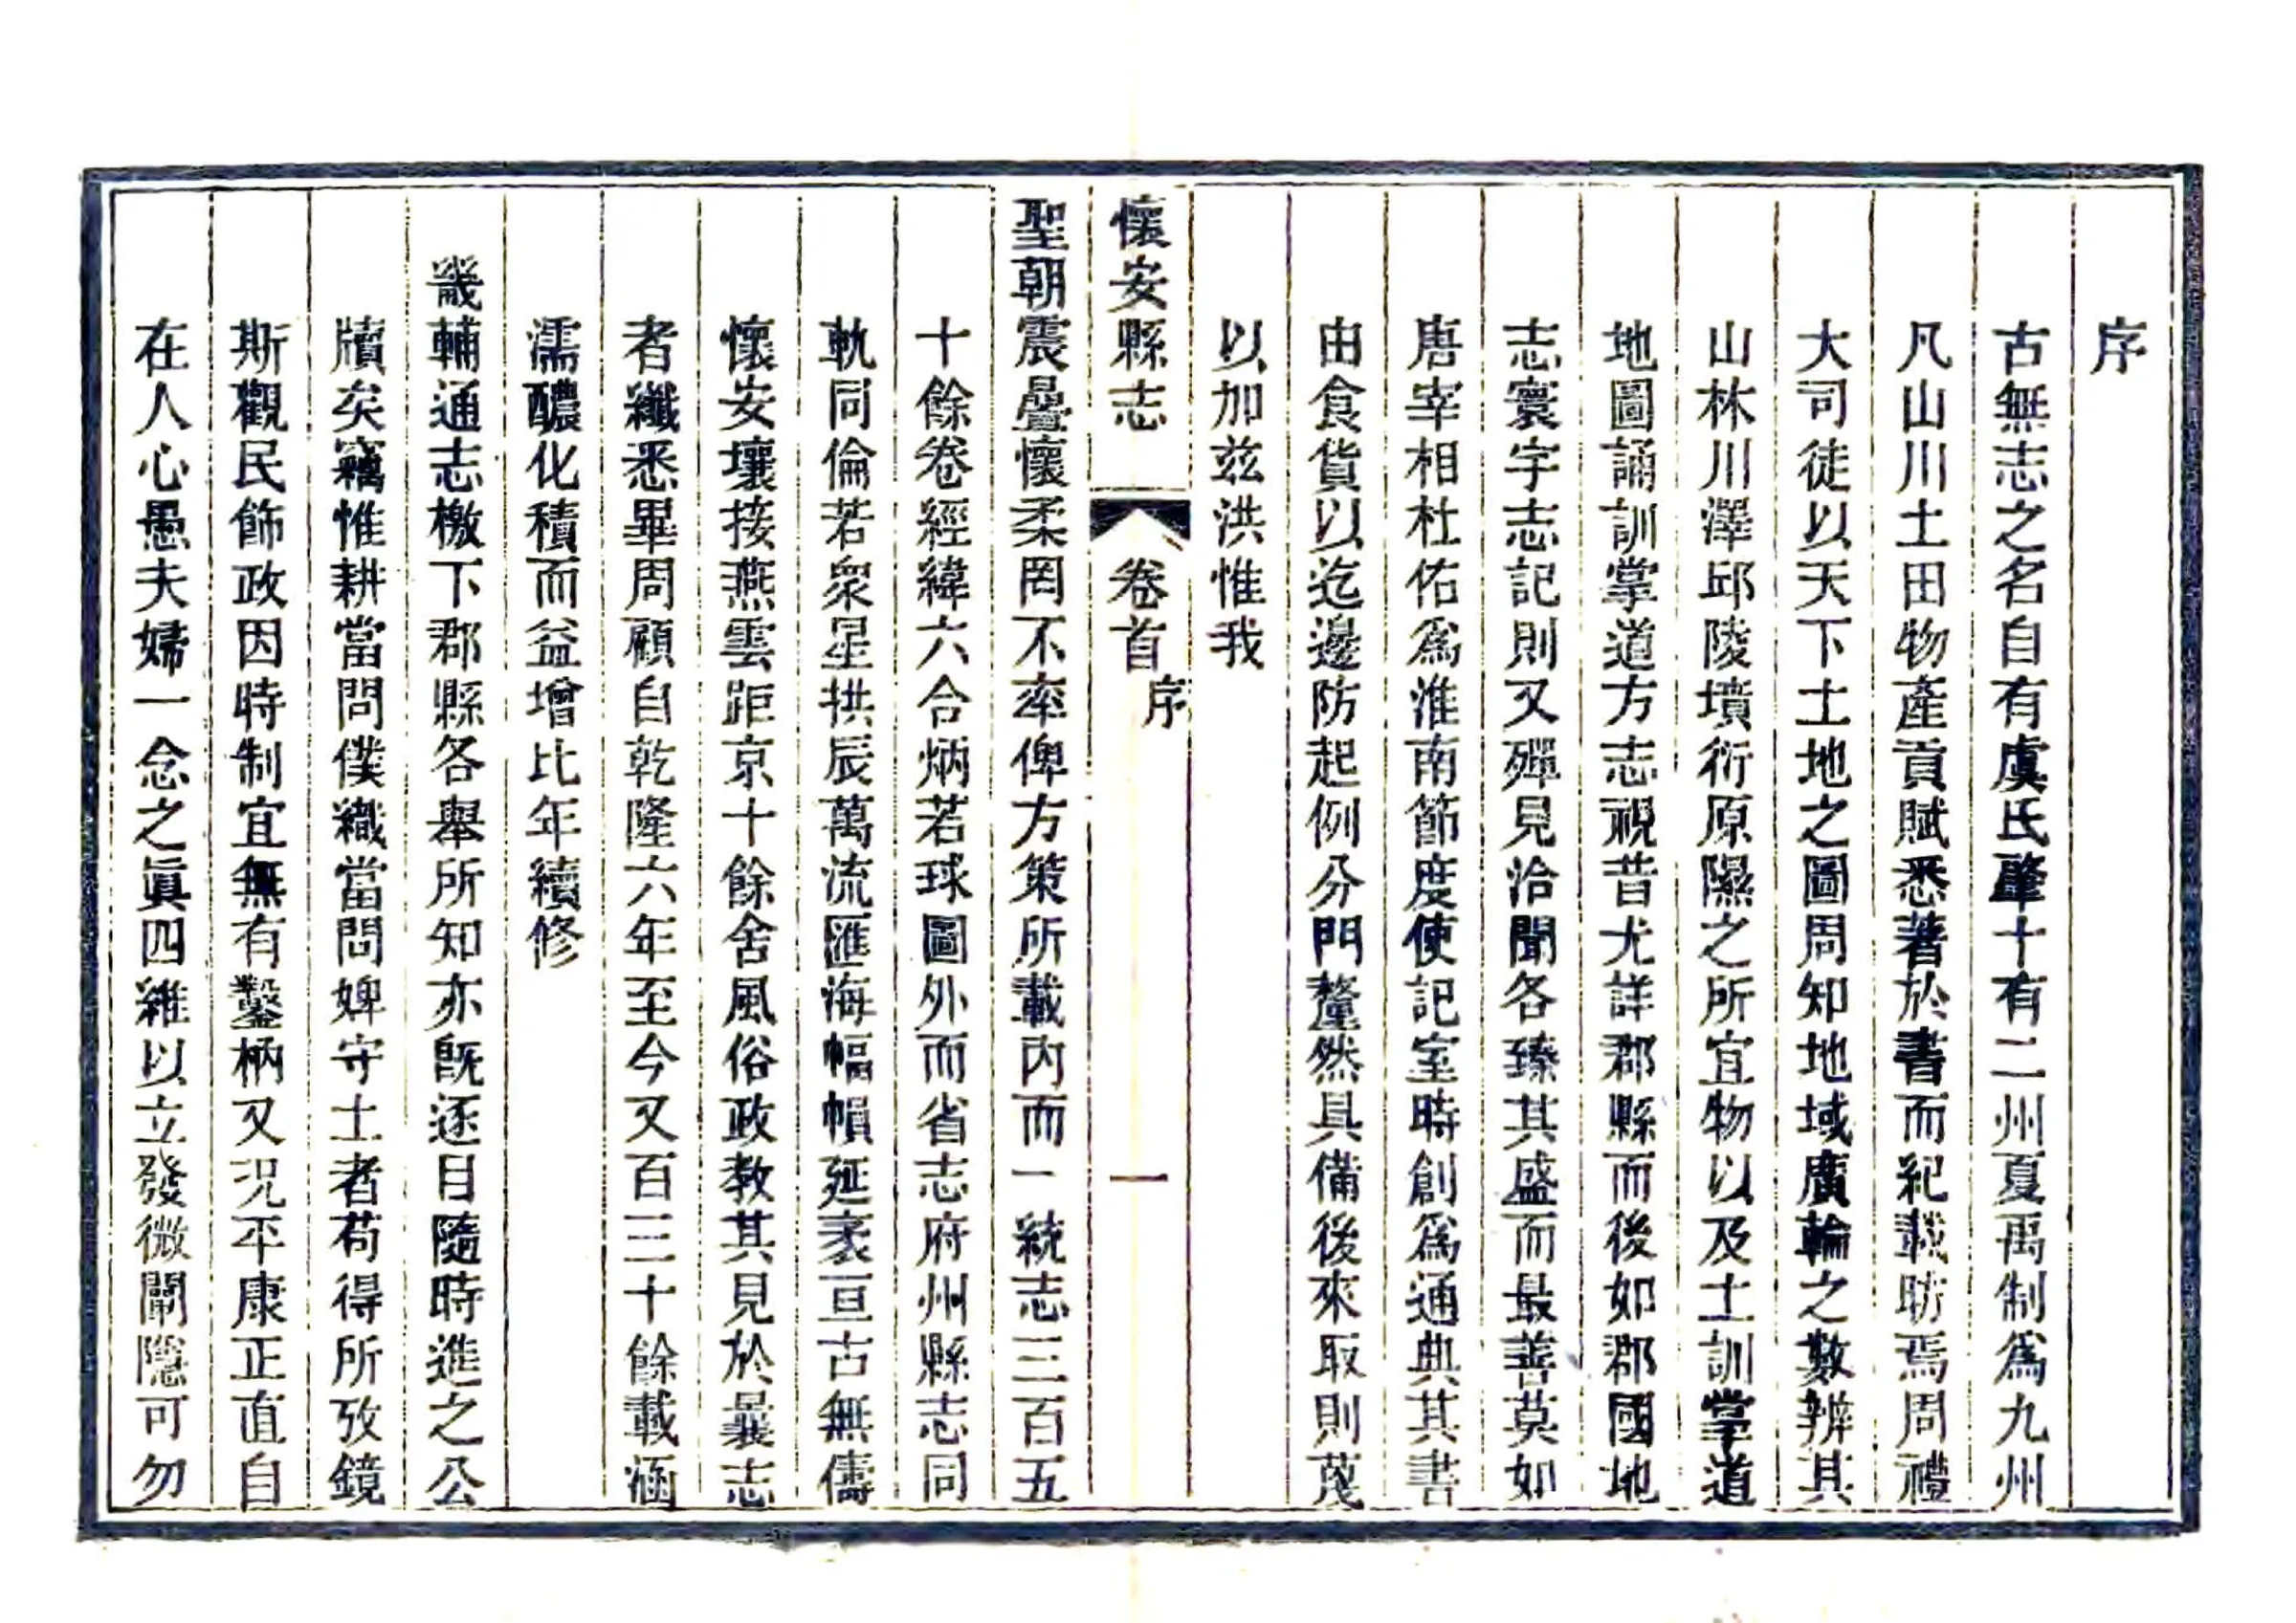 序
古無志之名自有虞氏肇十有二州夏禹制爲九州
凡山川土田物產貢賦悉著於書而紀載昉焉周禮
大司徒以天下土地之圖周知地域廣輪之數辨其
山林川澤邱陵墳衍原隰之所宜物以及土訓掌道
地圖誦訓掌道方志視昔尤詳郡縣而後如郡國地
志寰宇志記則又殫見洽聞各臻其盛而最善莫如
唐宰相杜佑爲淮南節度使記室時創爲通典其書
由食貨以迄邊防起例分門釐然具備後來取則蔑
以加茲洪惟我
懷安縣志 卷首 序 一
聖朝震疊懷柔罔不率俾方策所載內而一統志三百五
十餘卷經緯六合炳若球圖外而省志府州縣志同
軌同倫若衆星拱辰萬流匯海幅幀延袤亘古無儔
懷安壤接燕雲距京十餘舍風俗政教其見於曩志
者纖悉畢周顧自乾隆六年至今又百三十餘載涵
濡醲化積而益增比年續修
畿輔通志檄下郡縣各舉所知亦旣逐目隨時進之公
牘矣竊惟耕當問僕織當問婢守土者苟得所攷鏡
斯觀民飾政因時制宜無有鑿枘又況平康正直自
在人心愚夫婦一念之眞四維以立發微闡隱可勿